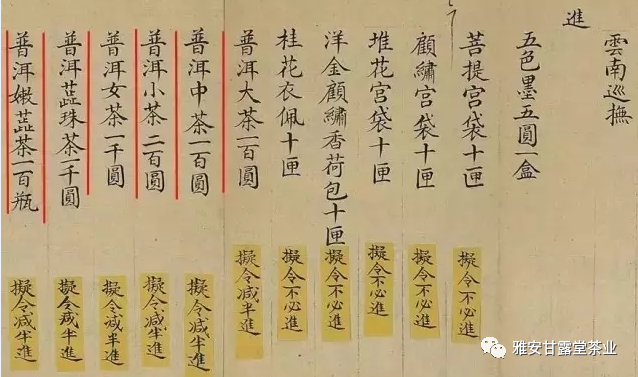 雲南巡撫
進
五色墨五圓一盒
菩提宮袋十匣
擬令不必進
顧繡宮袋十匣
擬令不必進
堆花宮袋十匣
擬令不必進
洋金顧繡香荷包十匣
擬令不必進
桂花衣佩十匣
擬令不必進
普洱大茶一百圓
擬令減半進
普洱中茶一百圓
擬令減半進
普洱小茶二百圓
擬令減半進
普洱女茶一千圓
擬令減半進
普洱蕋珠茶一千圓
擬令減半進
普洱嫩蕋茶一百瓶
擬令減半進
雅安甘露堂茶业